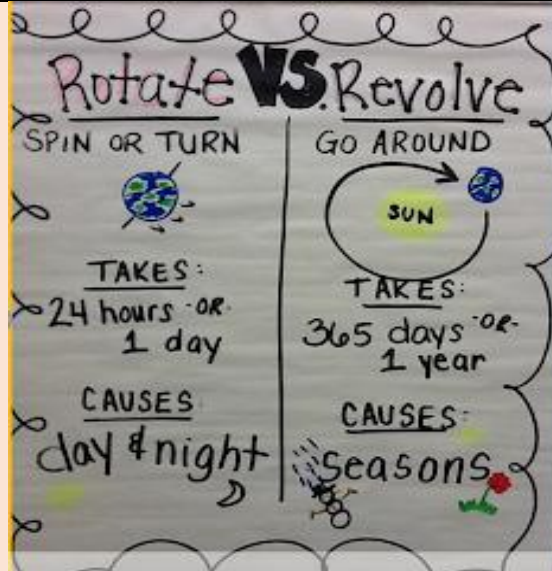 Rotate VS. Revolve
SPIN OR TURN
TAKES:
24 hours -OR-
1 day
CAUSES
day & night
GO AROUND
SUN
TAKES:
365 days -OR-
1 year
CAUSES:
seasons